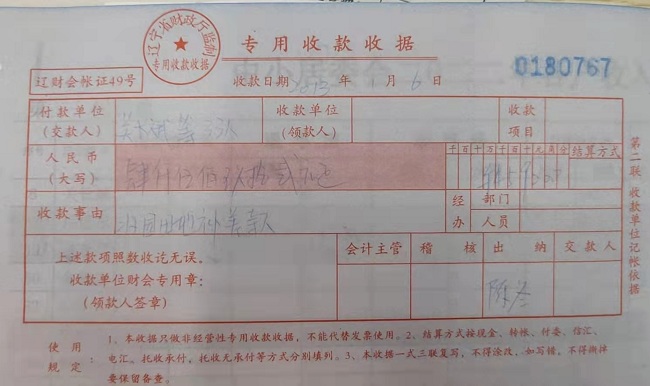 辽宁省财政厅监制
专用收款收据
专用收款收据
0180767
辽财会帐证49号
收款日期 年 月 6 日
付款单位
(交款人)
收款单位
(领款人)
收款
项目
人民币
(大写)
肆仟伍佰玖拾贰元
千百十万千百十元角分
结算方式
收款事由
经办
部门
人员
上述款项照数收讫无误。
收款单位财会专用章:
(领款人签章)
会计主管
稽核
出纳
交款人
第二联 收款单位记帐依据
使用规定:
1、本收据只做非经营性专用收款收据,不能代替发票使用。2、结算方式按现金、转帐、付委、信汇、
电汇。托收承付,托收无承付等方式分别填列。3、本收据一式三联复写,不得涂改,如写错,不得撕掉
要保留备查。